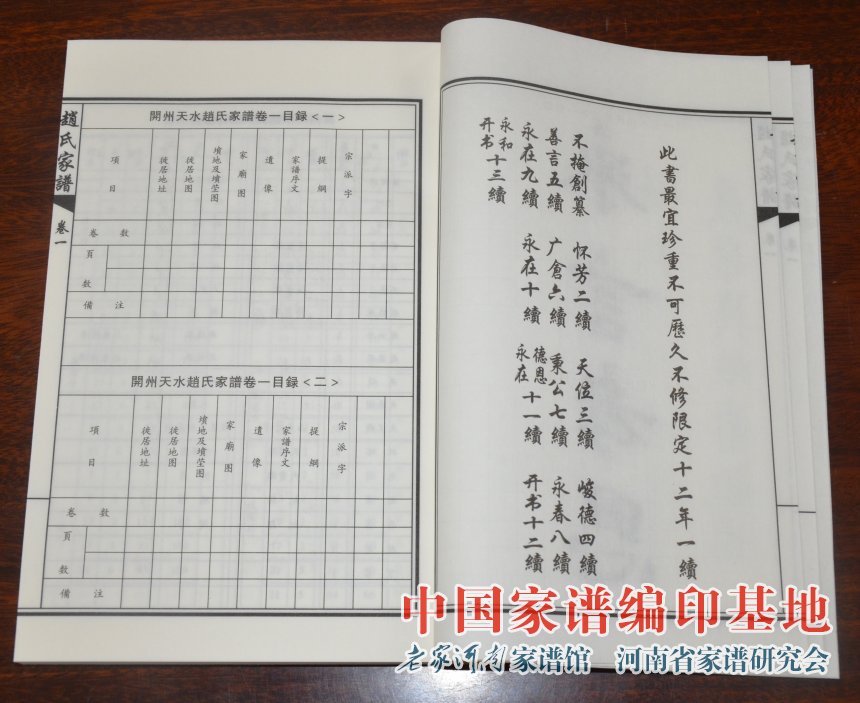 此書最宜珍重不可歷久不修限定十二年一續
不掩創纂 怀芳二續 天位三續 峻德四續
善言五續 广倉六續 秉公七續 永春八續
永在九續 永在十續 德恩永在十一續 开书十二續
永和开书十三續
趙氏家譜 卷一
開州天水趙氏家譜卷一目録<一>
項目
徙居地址
徙居地图
墳地及墳茔图
家廟图
遺像
家譜序文
提綱
宗派字
卷数
頁数
備注
開州天水趙氏家譜卷一目録<二>
項目
徙居地址
徙居地图
墳地及墳茔图
家廟图
遺像
家譜序文
提綱
宗派字
卷数
頁数
備注
中国家谱编印基地
老家河南家谱馆 河南省家谱研究会